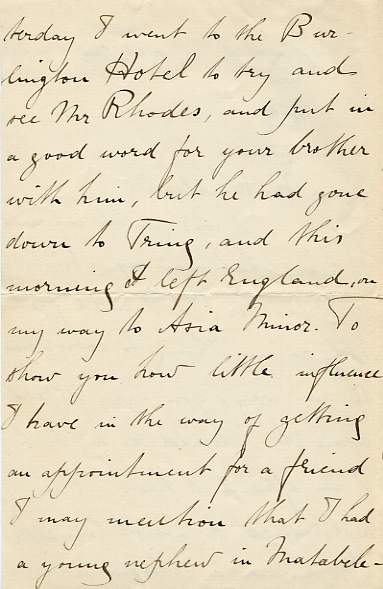 terday I went to the Bur-
lington Hotel to try and
see Mr Rhodes, and put in
a good word for your brother
with him, but he had gone
down to Tring, and this
morning I left England, on
my way to Asia Minor. To
show you how little influence
I have in the way of getting
an appointment for a friend
I may mention that I had
a young nephew in Matabele-